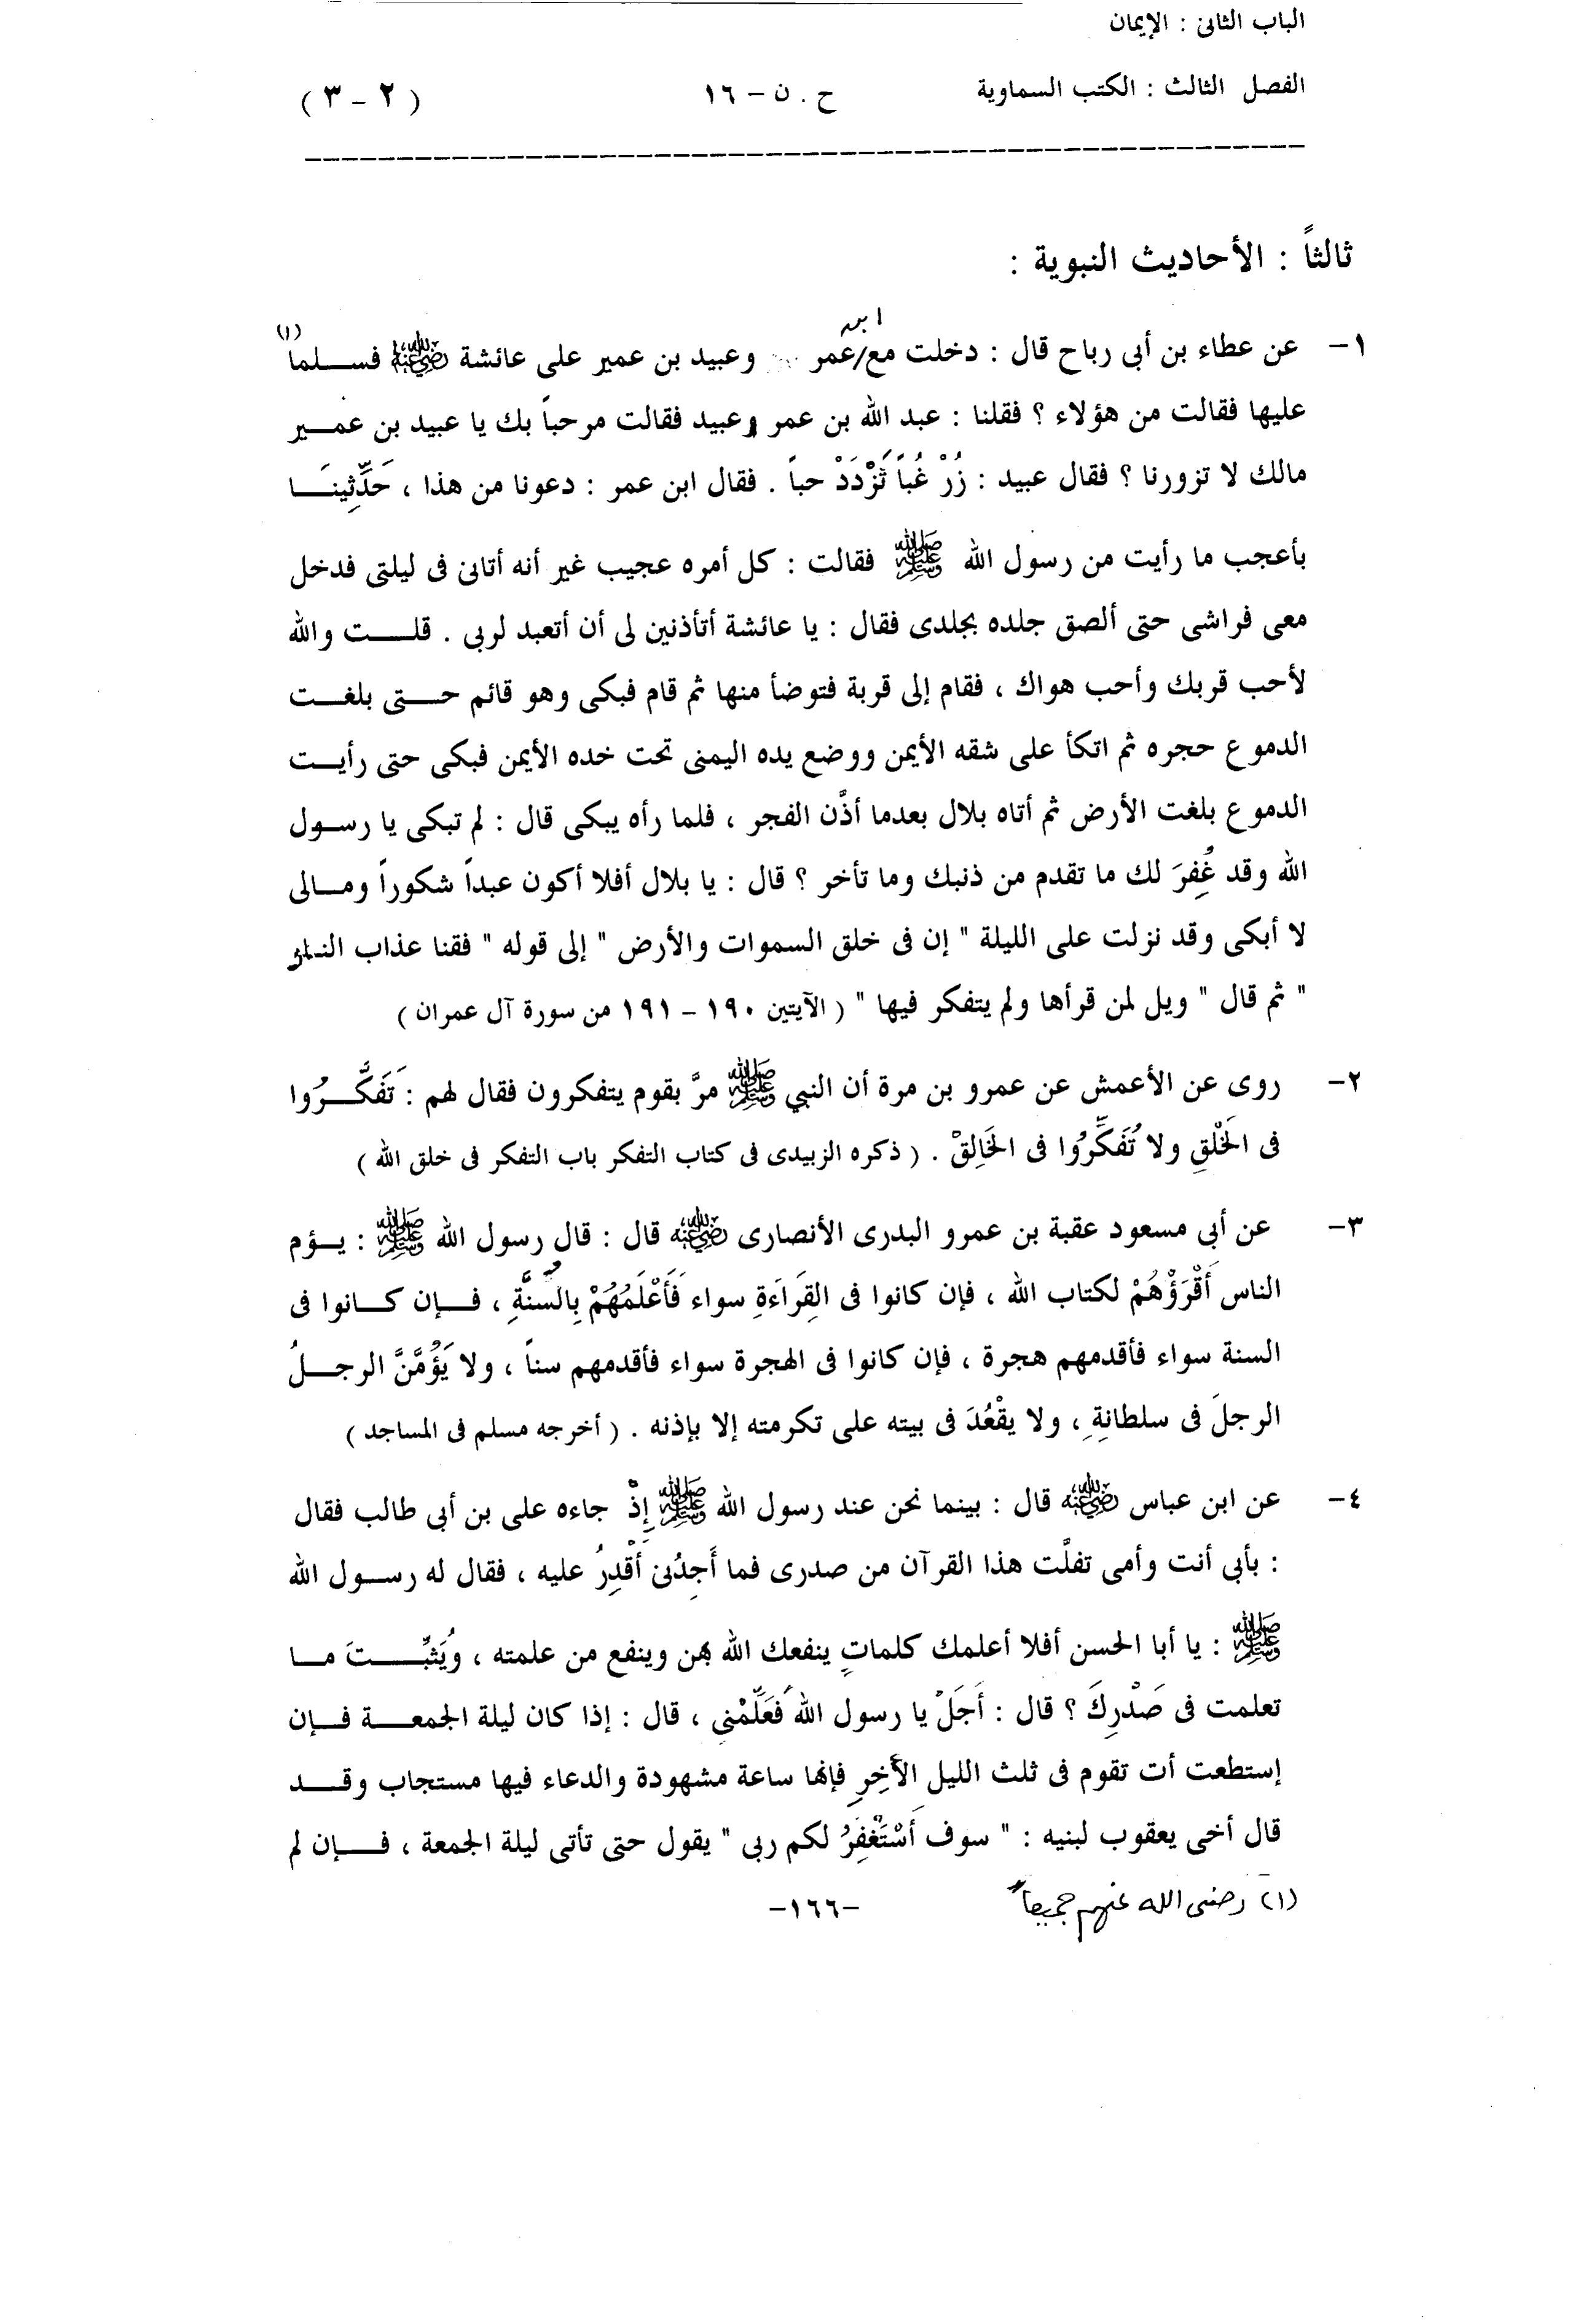 الباب الثانى : الإيمان
الفصل الثالث : الكتب السماوية ح . ن - ١٦ ( ٢ - ٣ )
ثالثاً : الأحاديث النبوية :
١- عن عطاء بن أبى رباح قال : دخلت مع/ ابن عمر وعبيد بن عمير على عائشة رضي الله عنه فسلما (١)
عليها فقالت من هؤلاء ؟ فقلنا : عبد الله بن عمر وعبيد فقالت مرحباً بك يا عبيد بن عمير
مالك لا تزورنا ؟ فقال عبيد : زُرْ غُباً تَزْدَدْ حباً . فقال ابن عمر : دعونا من هذا ، حَدِّثِينَا
بأعجب ما رأيت من رسول الله ﷺ فقالت : كل أمره عجيب غير أنه أتانى فى ليلتى فدخل
معى فراشى حتى ألصق جلده بجلدى فقال : يا عائشة أتأذنين لى أن أتعبد لربى . قلت والله
لأحب قربك وأحب هواك ، فقام إلى قربة فتوضأ منها ثم قام فبكى وهو قائم حتى بلغت
الدموع حجره ثم اتكأ على شقه الأيمن ووضع يده اليمنى تحت خده الأيمن فبكى حتى رأيت
الدموع بلغت الأرض ثم أتاه بلال بعدما أذَّن الفجر ، فلما رأه يبكى قال : لم تبكى يا رسول
الله وقد غُفِرَ لك ما تقدم من ذنبك وما تأخر ؟ قال : يا بلال أفلا أكون عبداً شكوراً ومالى
لا أبكى وقد نزلت على الليلة " إن فى خلق السموات والأرض " إلى قوله " فقنا عذاب النار
" ثم قال " ويل لمن قرأها ولم يتفكر فيها " ( الآيتين ١٩٠ - ١٩١ من سورة آل عمران )
٢- روى عن الأعمش عن عمرو بن مرة أن النبي ﷺ مرَّ بقوم يتفكرون فقال لهم : تَفَكَّرُوا
فى الخَلْقِ ولا تُفَكِّرُوا فى الخَالِقْ . ( ذكره الزبيدى فى كتاب التفكر باب التفكر فى خلق الله )
٣- عن أبى مسعود عقبة بن عمرو البدرى الأنصارى رضي الله عنه قال : قال رسول الله ﷺ : يؤم
الناس أَقْرَؤُهُمْ لكتاب الله ، فإن كانوا فى القِرَاءَةِ سواء فَأَعْلَمُهُمْ بِالسُنَّةِ ، فإن كانوا فى
السنة سواء فأقدمهم هجرة ، فإن كانوا فى الهجرة سواء فأقدمهم سناً ، ولا يَؤُمَّنَّ الرجلُ
الرجلَ فى سلطانةِ ، ولا يقْعُدَ فى بيته على تكرمته إلا بإذنه . ( أخرجه مسلم فى المساجد )
٤- عن ابن عباس رضي الله عنه قال : بينما نحن عند رسول الله ﷺ إِذْ جاءه على بن أبى طالب فقال
: بأبى أنت وأمى تفلَّت هذا القرآن من صدرى فما أَجِدُنِى أَقْدِرُ عليه ، فقال له رسول الله
ﷺ : يا أبا الحسن أفلا أعلمك كلماتٍ ينفعك الله بهن وينفع من علمته ، ويُثبِّتَ ما
تعلمت فى صَدْرِكَ ؟ قال : أَجَلْ يا رسول الله فَعَلِّمْنِى ، قال : إذا كان ليلة الجمعة فإن
إستطعت أت تقوم فى ثلث الليل الأَخِرِ فإنها ساعة مشهودة والدعاء فيها مستجاب وقد
قال أخى يعقوب لبنيه : " سوف أَسْتَغْفِرُ لكم ربى " يقول حتى تأتى ليلة الجمعة ، فإن لم
(١) رضى الله عنهم جميعاً
-١٦٦-